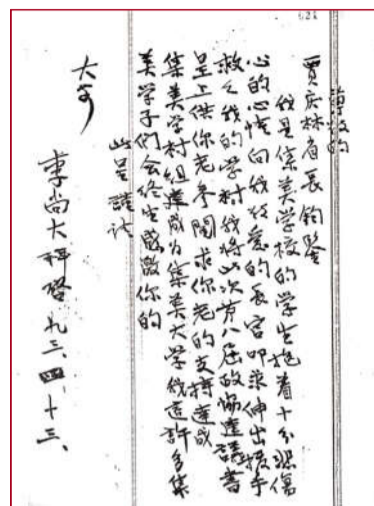 尊敬的
贾庆林省长钧鉴
我是集美学校的学生抱着十分悲伤
心的心情向我敬爱的长官叩求伸出援手
救之我的学村我将此次首八届政协建议书
呈上供你老参阅求你老的支持达成
集美学村组建成为集美大学我这许多集
美学子们会终生感激你的
此呈谨祝
大安
李尚大拜启 九三、四、十三、